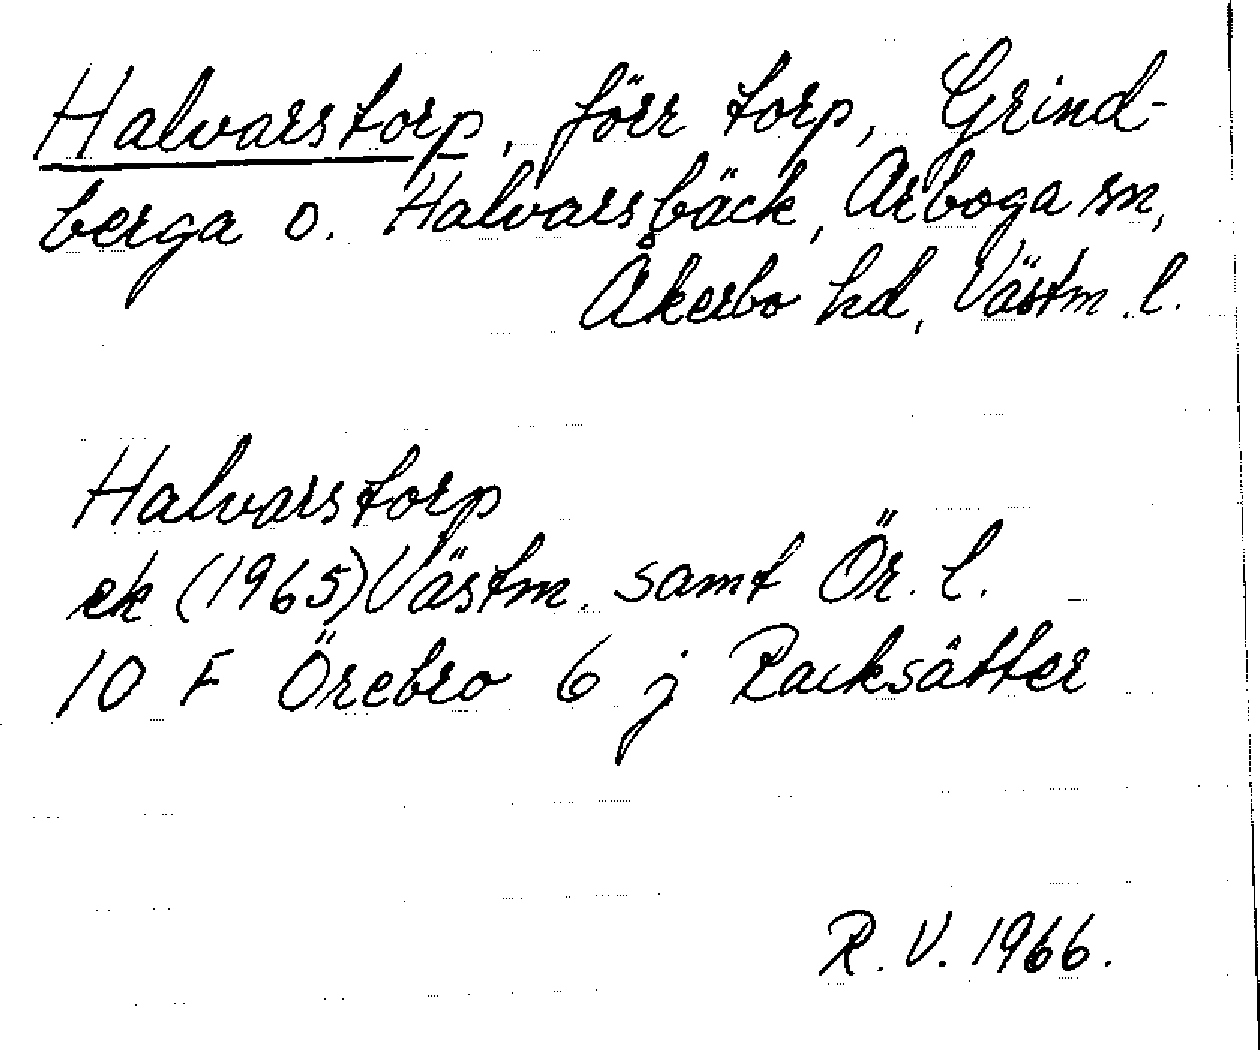 Halvarstorp, förr torp, Grind-
berga o. Halvarsbäck, Arboga sn,
Åkerbo hd, Västm. l.
Halvarstorp
ek (1965) Västm. samt Ör. l.
10 F Örebro 6 j Racksätter
R. V. 1966.